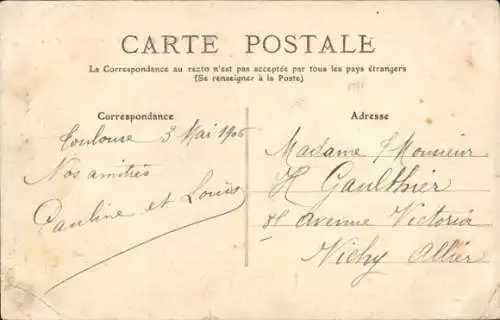 CARTE POSTALE
La Correspondance au recto n'est pas acceptée par tous les pays étrangers
(Se renseigner à la Poste)
Correspondance
Toulouse 3 Mai 1906
Nos amitiés
Pauline et Louis
Adresse
Madame & Monsieur
H Gaulthier
Avenue Victoria
Vichy Allier